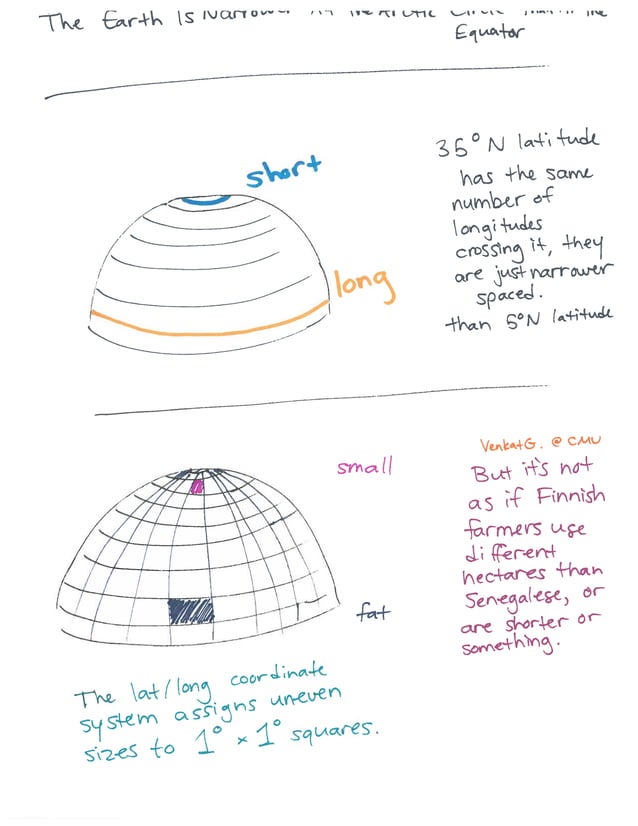 The Earth Is
Equator
short
35° N latitude
has the same
number of
longitudes
crossing it, they
are just narrower
spaced.
than 5°N latitude
long
VenkatG. @ CMU
small
But it's not
as if Finnish
farmers use
different
hectares than
Senegalese, or
are shorter or
something.
fat
The lat/long coordinate
system assigns uneven
sizes to 1° × 1° squares.